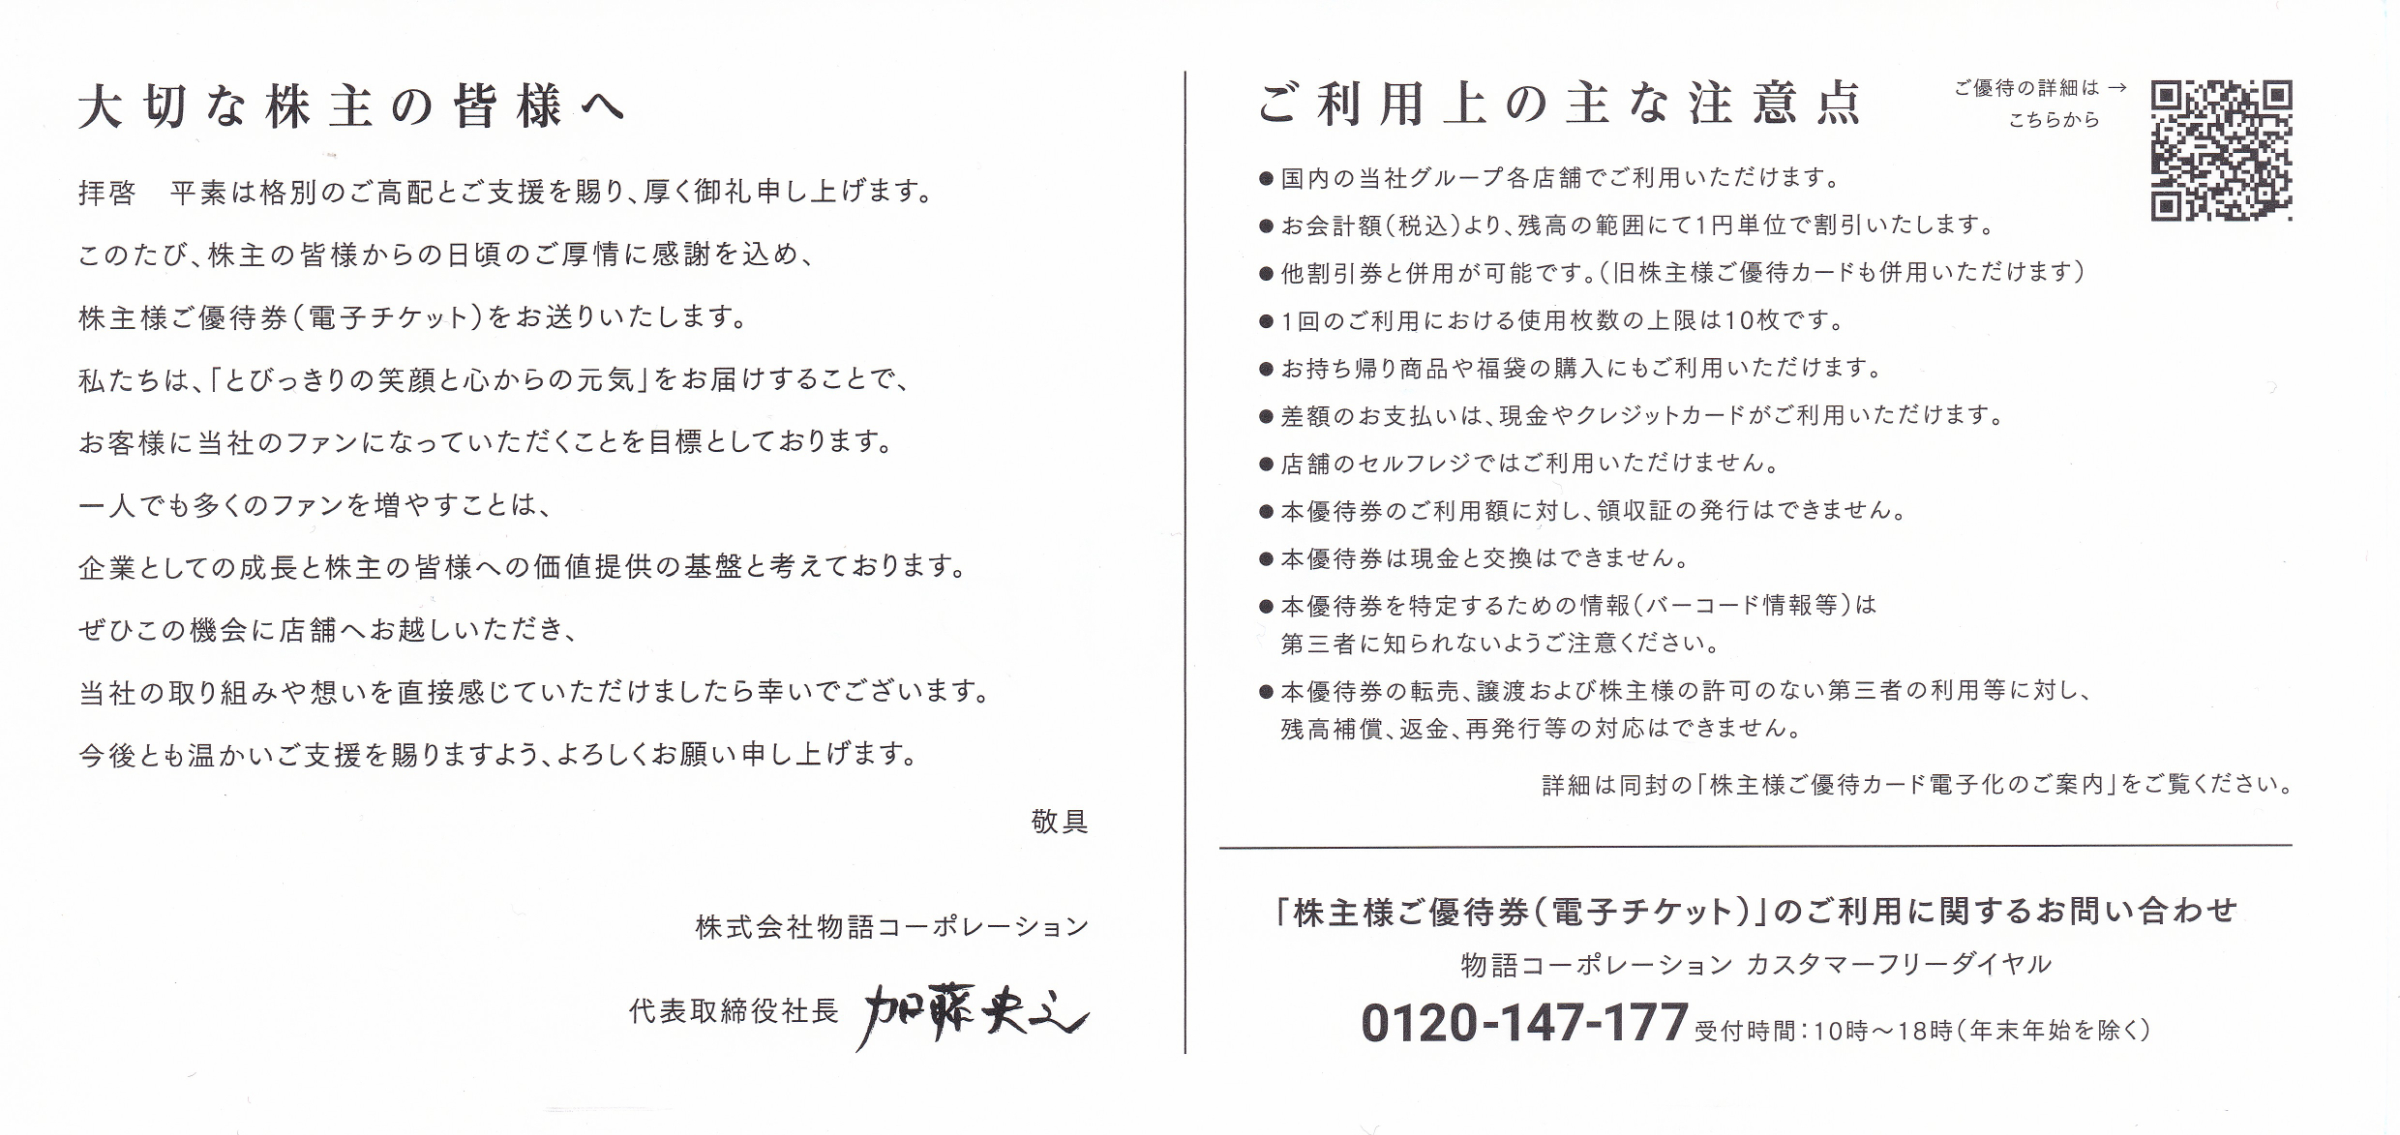 大切な株主の皆様へ
拝啓　平素は格別のご高配とご支援を賜り、厚く御礼申し上げます。
このたび、株主の皆様からの日頃のご厚情に感謝を込め、
株主様ご優待券（電子チケット）をお送りいたします。
私たちは、「とびっきりの笑顔と心からの元気」をお届けすることで、
お客様に当社のファンになっていただくことを目標としております。
一人でも多くのファンを増やすことは、
企業としての成長と株主の皆様への価値提供の基盤と考えております。
ぜひこの機会に店舗へお越しいただき、
当社の取り組みや想いを直接感じていただけましたら幸いでございます。
今後とも温かいご支援を賜りますよう、よろしくお願い申し上げます。
敬具
株式会社物語コーポレーション
代表取締役社長 加藤央之
ご利用上の主な注意点
ご優待の詳細は→
こちらから
●国内の当社グループ各店舗でご利用いただけます。
●お会計額（税込）より、残高の範囲にて1円単位で割引いたします。
●他割引券と併用が可能です。（旧株主様ご優待カードも併用いただけます）
●1回のご利用における使用枚数の上限は10枚です。
●お持ち帰り商品や福袋の購入にもご利用いただけます。
●差額のお支払いは、現金やクレジットカードがご利用いただけます。
●店舗のセルフレジではご利用いただけません。
●本優待券のご利用額に対し、領収証の発行はできません。
●本優待券は現金と交換はできません。
●本優待券を特定するための情報（バーコード情報等）は
第三者に知られないようご注意ください。
●本優待券の転売、譲渡および株主様の許可のない第三者の利用等に対し、
残高補償、返金、再発行等の対応はできません。
詳細は同封の「株主様ご優待カード電子化のご案内」をご覧ください。
「株主様ご優待券（電子チケット）」のご利用に関するお問い合わせ
物語コーポレーション カスタマーフリーダイヤル
0120-147-177 受付時間：10時～18時（年末年始を除く）